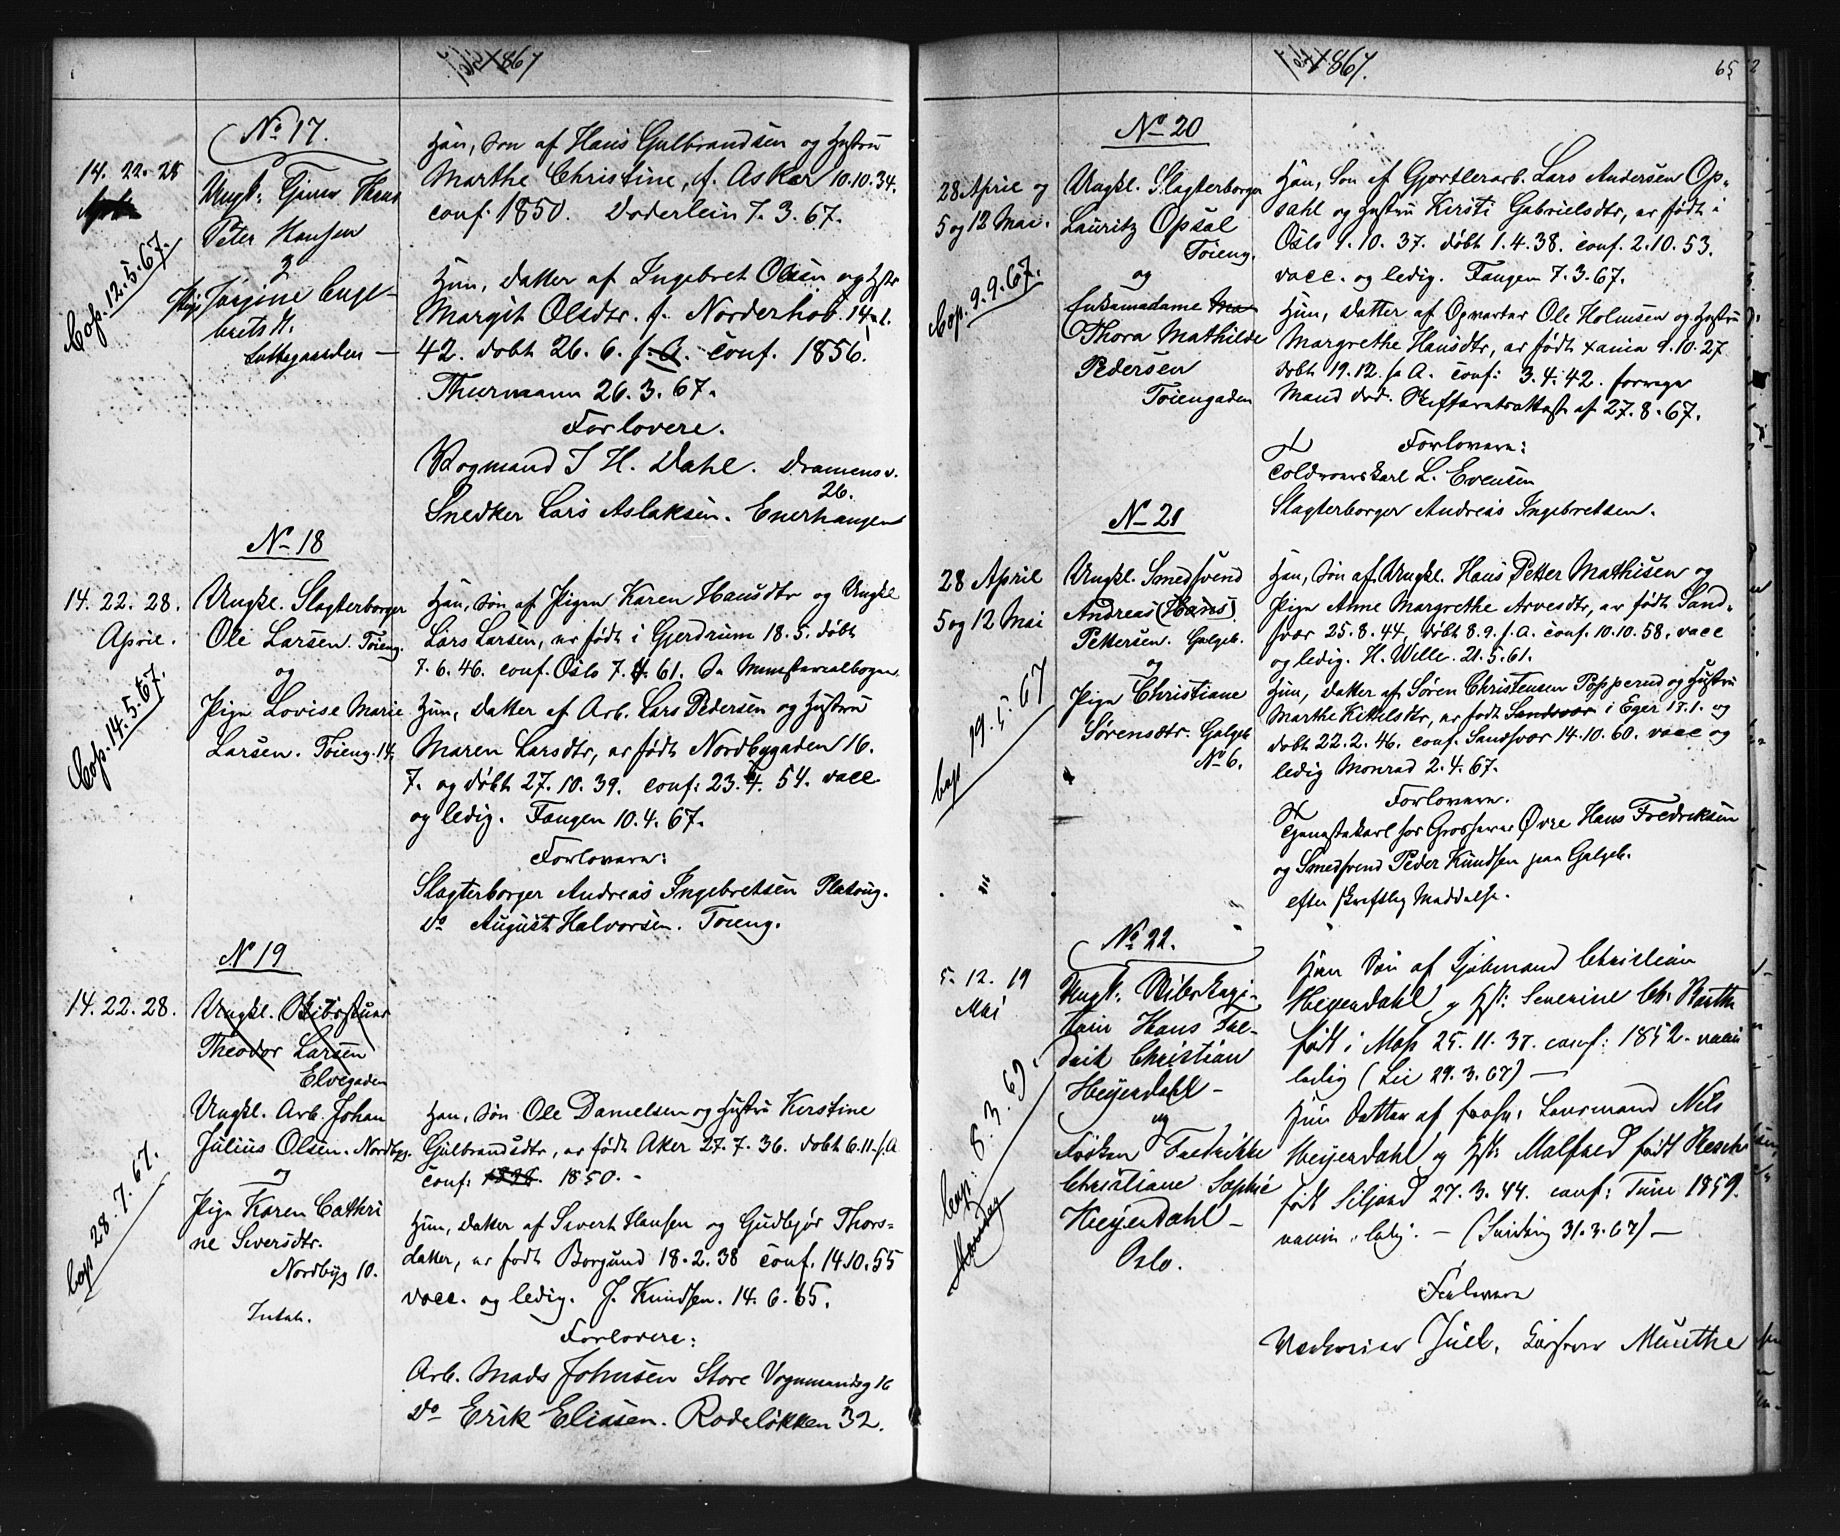 1867
No 17.
14. 22. 28
Ungk: Tjener Hans
Peter Hansen
&
Pige Jørgine Enge-
brets dt.
Cop. 12.5.67.
Han, Søn af Hans Gulbrandsen og Hustru
Marthe Christine, f. Asker 10.10.34.
conf. 1850. Døderlein 7.3.67.
Hun, Datter af Ingebret Olsen og Hstr
Margit Olsdtr. f. Norderhov 14
42. døbt 26.6. s.A. conf. 1856.
Thurmann 26.3.67.
Forlovere.
Vogmand J H. Dahl. Dramensv.
26.
Snedker Lars Aslaksen. Enerhaugen
No 18
14. 22. 28.
April.
Cop. 14.5.67.
Ungkl. Slagterborger
Ole Larsen. Tøieng.
og
Pige Lovise Marie
Larsen. Tøieng. 14.
Han, Søn af Pigen Karen Hansdtr og Ungkl
Lars Larsen, er født i Gjerdrum 18.5. døbt
7.6.46. conf. Oslo 7.4.61. Se Ministerialbogen.
Hun, Datter af Arb. Lars Pedersen og Hustru
Maren Larsdtr, er født Nordbygaden 16.
7. og døbt 27.10.39. conf: 23.4.54. vacc
og ledig. Fangen 10.4.67.
Forlovere:
Slagterborger Andreas Ingebretsen Platoug.
Do August Halvorsen. Tøieng.
N 19
14. 22. 28.
Ungkl.
Theodor Larsen
Elvegaden
Ungkl. Arb. Johan
Julius Olsen. Nordbyg.
og
Pige Karen Cathri
ne Siversdtr.
Nordbyg 10.
cop 28.7.67.
Han, Søn Ole Danielsen og Hustru Kirstine
Gulbrandsdtr, er født Aker 27.7.36. døbt 6.11. s.A
conf: 1850.
Hun, datter af Sivert Hansen og Gudbjør Thors-
datter, er født Borgund 18.2.38 conf. 14.10.55
vacc. og ledig. J. Knudsen. 14.6.65.
Forlovere:
Arb. Mads Johnsen Store Vognmandsg 16
Do Erik Eliasen. Rodeløkken 32.
1867.
65
No 20
28 April og
5 og 12 Mai.
Cop. 9.9.67.
Ungkl. Slagterborger
Lauritz Opsal
Tøieng.
og
Enkemadame
Thora Mathilde
Pedersen
Tøiengaden
Han, Søn af Gjørtlerarb. Lars Andersen Op-
sahl og Hustru Kirsti Gabrielsdtr, er født i
Oslo 9.10.37. døbt 1.4.38. conf. 2.10.53.
vacc. og ledig. Fangen 7.3.67.
Hun, Datter af Opvarter Ole Holmsen og Hustru
Margrethe Hansdtr, er født Xania 9.10.27
døbt 19.12. s A. conf: 3.4.42. forrige
Mand død. Skifteretsattest af 27.8.67.
Forlovere:
Toldvoerskarl L. Evensen
Slagterborger Andreas Ingebretsen.
No 21
28 April
5 og 12 Mai
cop 19.5.67
Ungkl. Smedsvend
Andreas (Hans)
Pettersen. Galgeb.
og
Pige Christiane
Sørensdtr. Galgeb
No 6.
Han, Søn af Ungkl. Hans Petter Mathisen og
Pige Anne Margrethe Arvesdtr, er født Sand-
svær 25.8.44, døbt 8.9. s.A. conf. 10.10.58. vacc
og ledig. H. Wille. 21.5.61.
Hun, datter af Søren Christensen Popperud og Hustru
Marthe Kittelsdtr, er født Sandsvær i Eger 17.1. og
døbt 22.2.46. conf. Sandsvær 14.10.60. vacc og
ledig Monrad 2.4.67.
Forlovere.
Tjenestekarl hos Grosserer Øvre Hans Fredriksen
og Smedsvend Peder Knudsen paa Galgeb.
efter skriftlig Meddelse.
No 22.
5. 12. 19
Mai
Cop: 8.3.69.
Ungk: Skibskapi-
tain Hans Fre-
derik Christian
Heyerdahl -
og
Frøken Fredrikke
Christiane Sophie
Heyerdahl -
Oslo.
Han Søn af Kjøbmand Christian
Heyerdahl og Hst: Severine Ch:
født i Moss 25.11.37. conf: 1852. vaccin
ledig (Lie 29.3.67) -
Hun datter af Lensmand Nels
Heyerdahl og Hst: Malfred født Hesch
født Siljord 27.3.44. conf: Tune 1859.
vaccin. ledig. - (31.3.67) -
Forlovere
Juel, Munthe